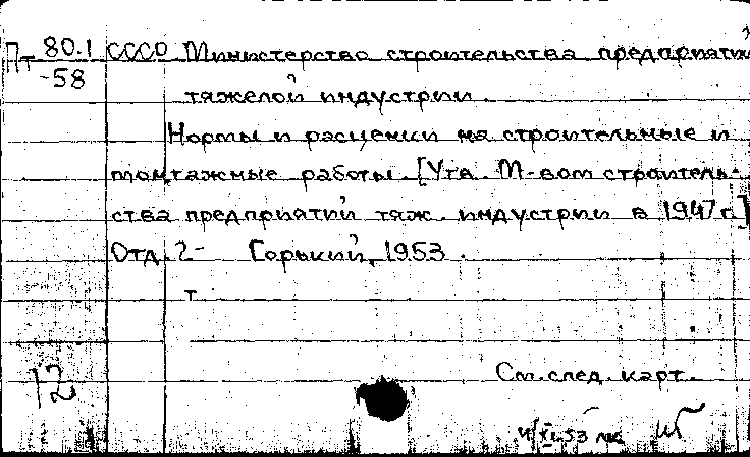 Пт 80-1 СССР Министерство строительства предприятий
-58
тяжелой индустрии.
Нормы и расценки на строительные и
монтажные работы. [Утв. М-вом строитель-
ства предприятий тяж. индустрии в 1947 г.]
Отд. 2- Горький, 1953.
т
См. след. карт.
12
4/XI-53